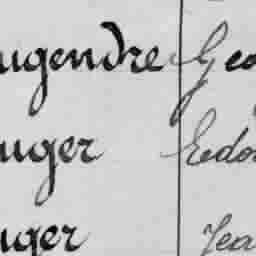 ugendre Geo
uger Edo
uger Jea